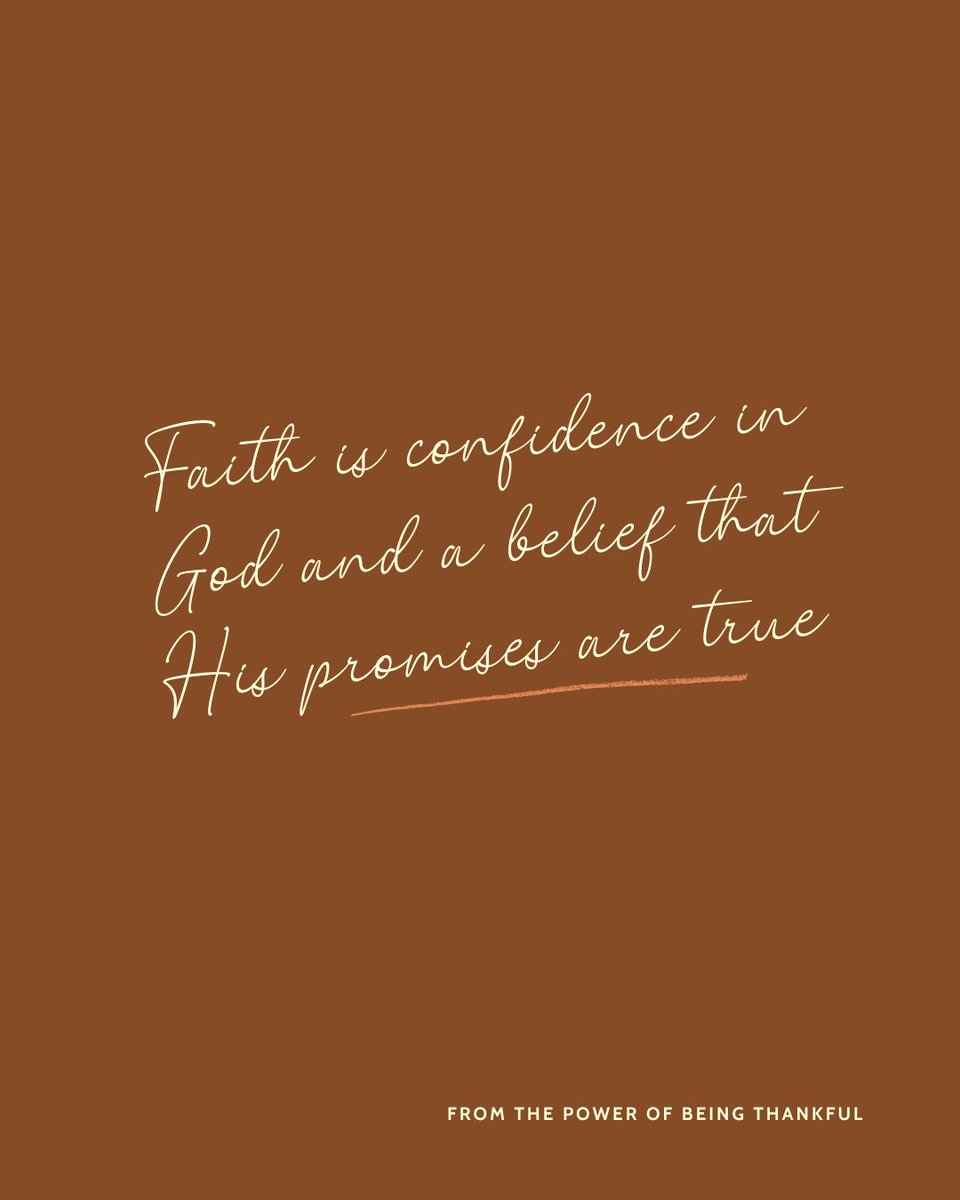 Faith is confidence in
God and a belief that
His promises are true
FROM THE POWER OF BEING THANKFUL